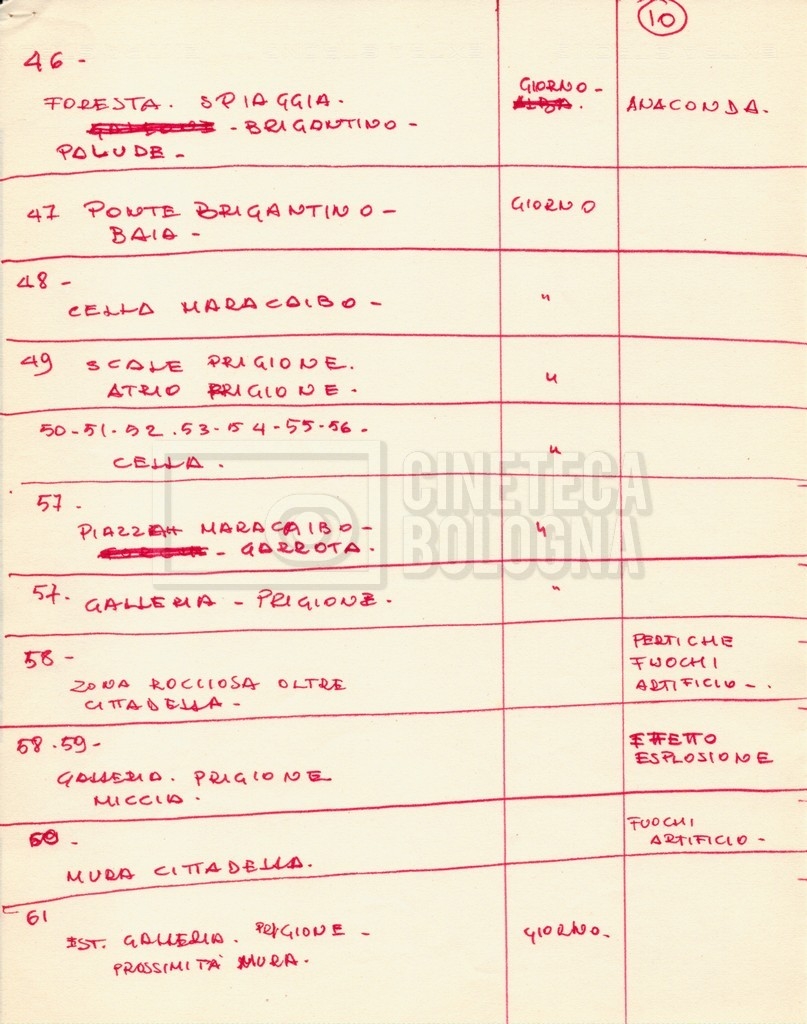 10
46 -
FORESTA. SPIAGGIA. GIORNO - ANACONDA.
ALBA.
- BRIGANTINO -
PALUDE -
47 PONTE BRIGANTINO - GIORNO
BAIA -
48 -
CELLA MARACAIBO - "
49 SCALE PRIGIONE.
ATRIO PRIGIONE. "
50-51-52.53-54-55-56-
CELLA. "
57 -
PIAZZA MARACAIBO - "
- GARROTA.
57. GALLERIA - PRIGIONE. "
58 - PERTICHE
FUOCHI
ZONA ROCCIOSA OLTRE ARTIFICIO -.
CITTADELLA -
58.59- EFFETTO
ESPLOSIONE
GALLERIA. PRIGIONE
MICCIA.
60 - FUOCHI
ARTIFICIO -
MURA CITTADELLA.
61
EST. GALLERIA. PRIGIONE - GIORNO.
PROSSIMITÀ MURA.
CINETECA
BOLOGNA